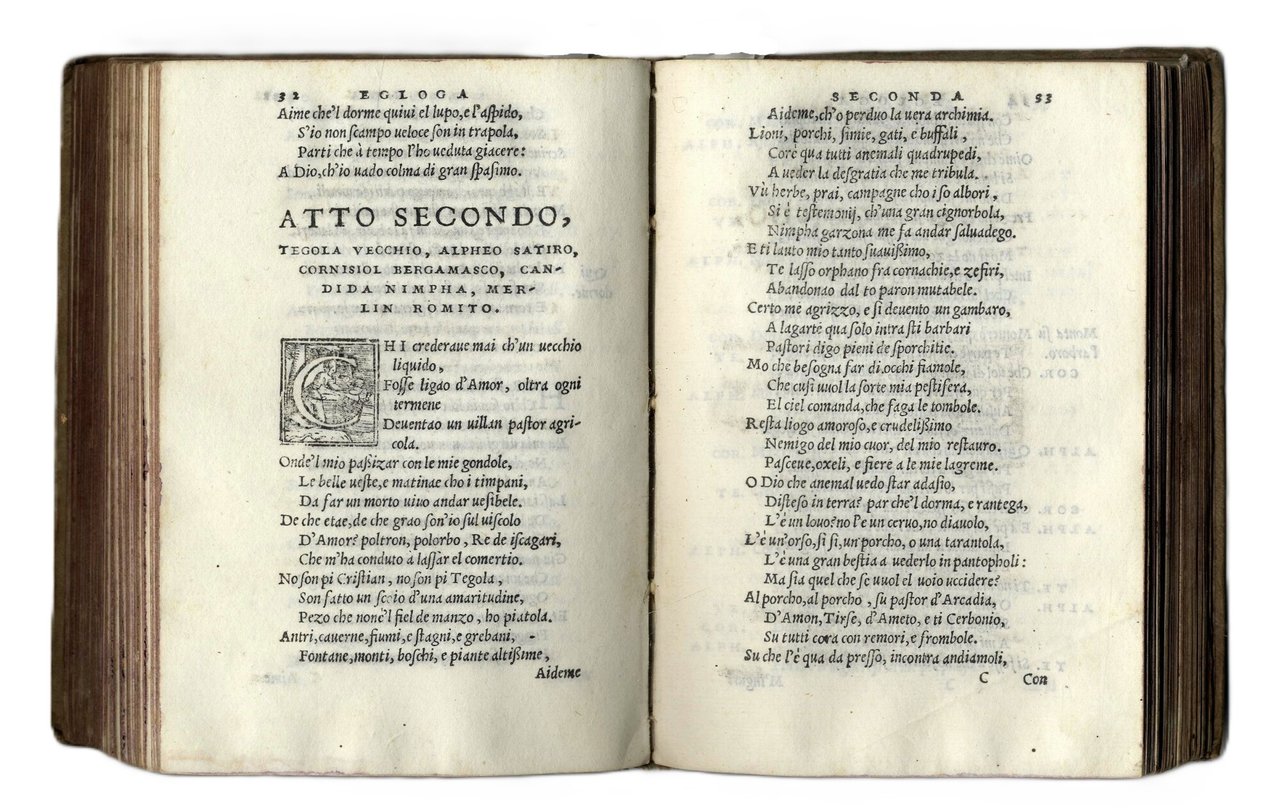 32 EGLOGA
Aime che'l dorme quiui el lupo, e l'aſpido,
S'io non ſcampo ueloce ſon in trapola,
Parti che à tempo l'ho ueduta giacere:
A Dio, ch'io uado colma di gran ſpaſimo.
ATTO SECONDO,
TEGOLA VECCHIO, ALPHEO SATIRO,
CORNISIOL BERGAMASCO, CAN-
DIDA NIMPHA, MER-
LIN ROMITO.
CHI crederaue mai ch'un uecchio
liquido,
Foſſe ligao d'Amor, oltra ogni
termene
Deuentao un uillan paſtor agri-
cola.
Onde'l mio paſsizar con le mie gondole,
Le belle ueſte, e matinae cho i timpani,
Da far un morto uiuo andar ueſibele.
De che etae, de che grao ſon'io ſul uiſcolo
D'Amor? poltron, polorbo, Re de iſcagari,
Che m'ha conduto a laſſar el comertio.
No ſon pi Criſtian, no ſon pi Tegola,
Son fatto un ſcoio d'una amaritudine,
Pezo che non è'l fiel de manzo, ho piatola.
Antri, cauerne, fiumi, e ſtagni, e grebani,
Fontane, monti, boſchi, e piante altiſsime,
Aideme
SECONDA 53
Aideme, ch'o perduo la uera archimia.
Lioni, porchi, ſimie, gati, e buffali,
Corè qua tutti anemali quadrupedi,
A ueder la deſgratia che me tribula.
Vù herbe, prai, campagne cho i ſo albori,
Si è teſtemonij, ch'una gran cignorbola,
Nimpha garzona me fa andar ſaluadego.
E ti lauto mio tanto ſuauiſsimo,
Te laſſo orphano fra cornachie, e zefiri,
Abandonao dal to paron mutabele.
Certo me agrizzo, e ſi deuento un gambaro,
A lagarte qua ſolo intra ſti barbari
Paſtori digo pieni de ſporchitie.
Mo che beſogna far di occhi fiamole,
Che cuſi uuol la ſorte mia peſtifera,
El ciel comanda, che faga le tombole.
Reſta liogo amoroſo, e crudeliſsimo
Nemigo del mio cuor, del mio reſtauro.
Paſceue, oxeli, e fiere a le mie lagreme.
O Dio che anemal uedo ſtar adaſio,
Diſteſo in terra? par che'l dorma, e rantega,
L'è un louo? no l'e un ceruo, no diauolo,
L'è un'orſo, ſi ſi, un porcho, o una tarantola,
L'è una gran beſtia a uederlo in pantopholi:
Ma ſia quel che ſe uuol el uoio uccidere?
Al porcho, al porcho, ſu paſtor d'Arcadia,
D'Amon, Tirſe, d'Ameto, e ti Cerbonio,
Su tutti cora con remori, e frombole.
Su che l'è qua da preſſo, incontra andiamoli,
C Con